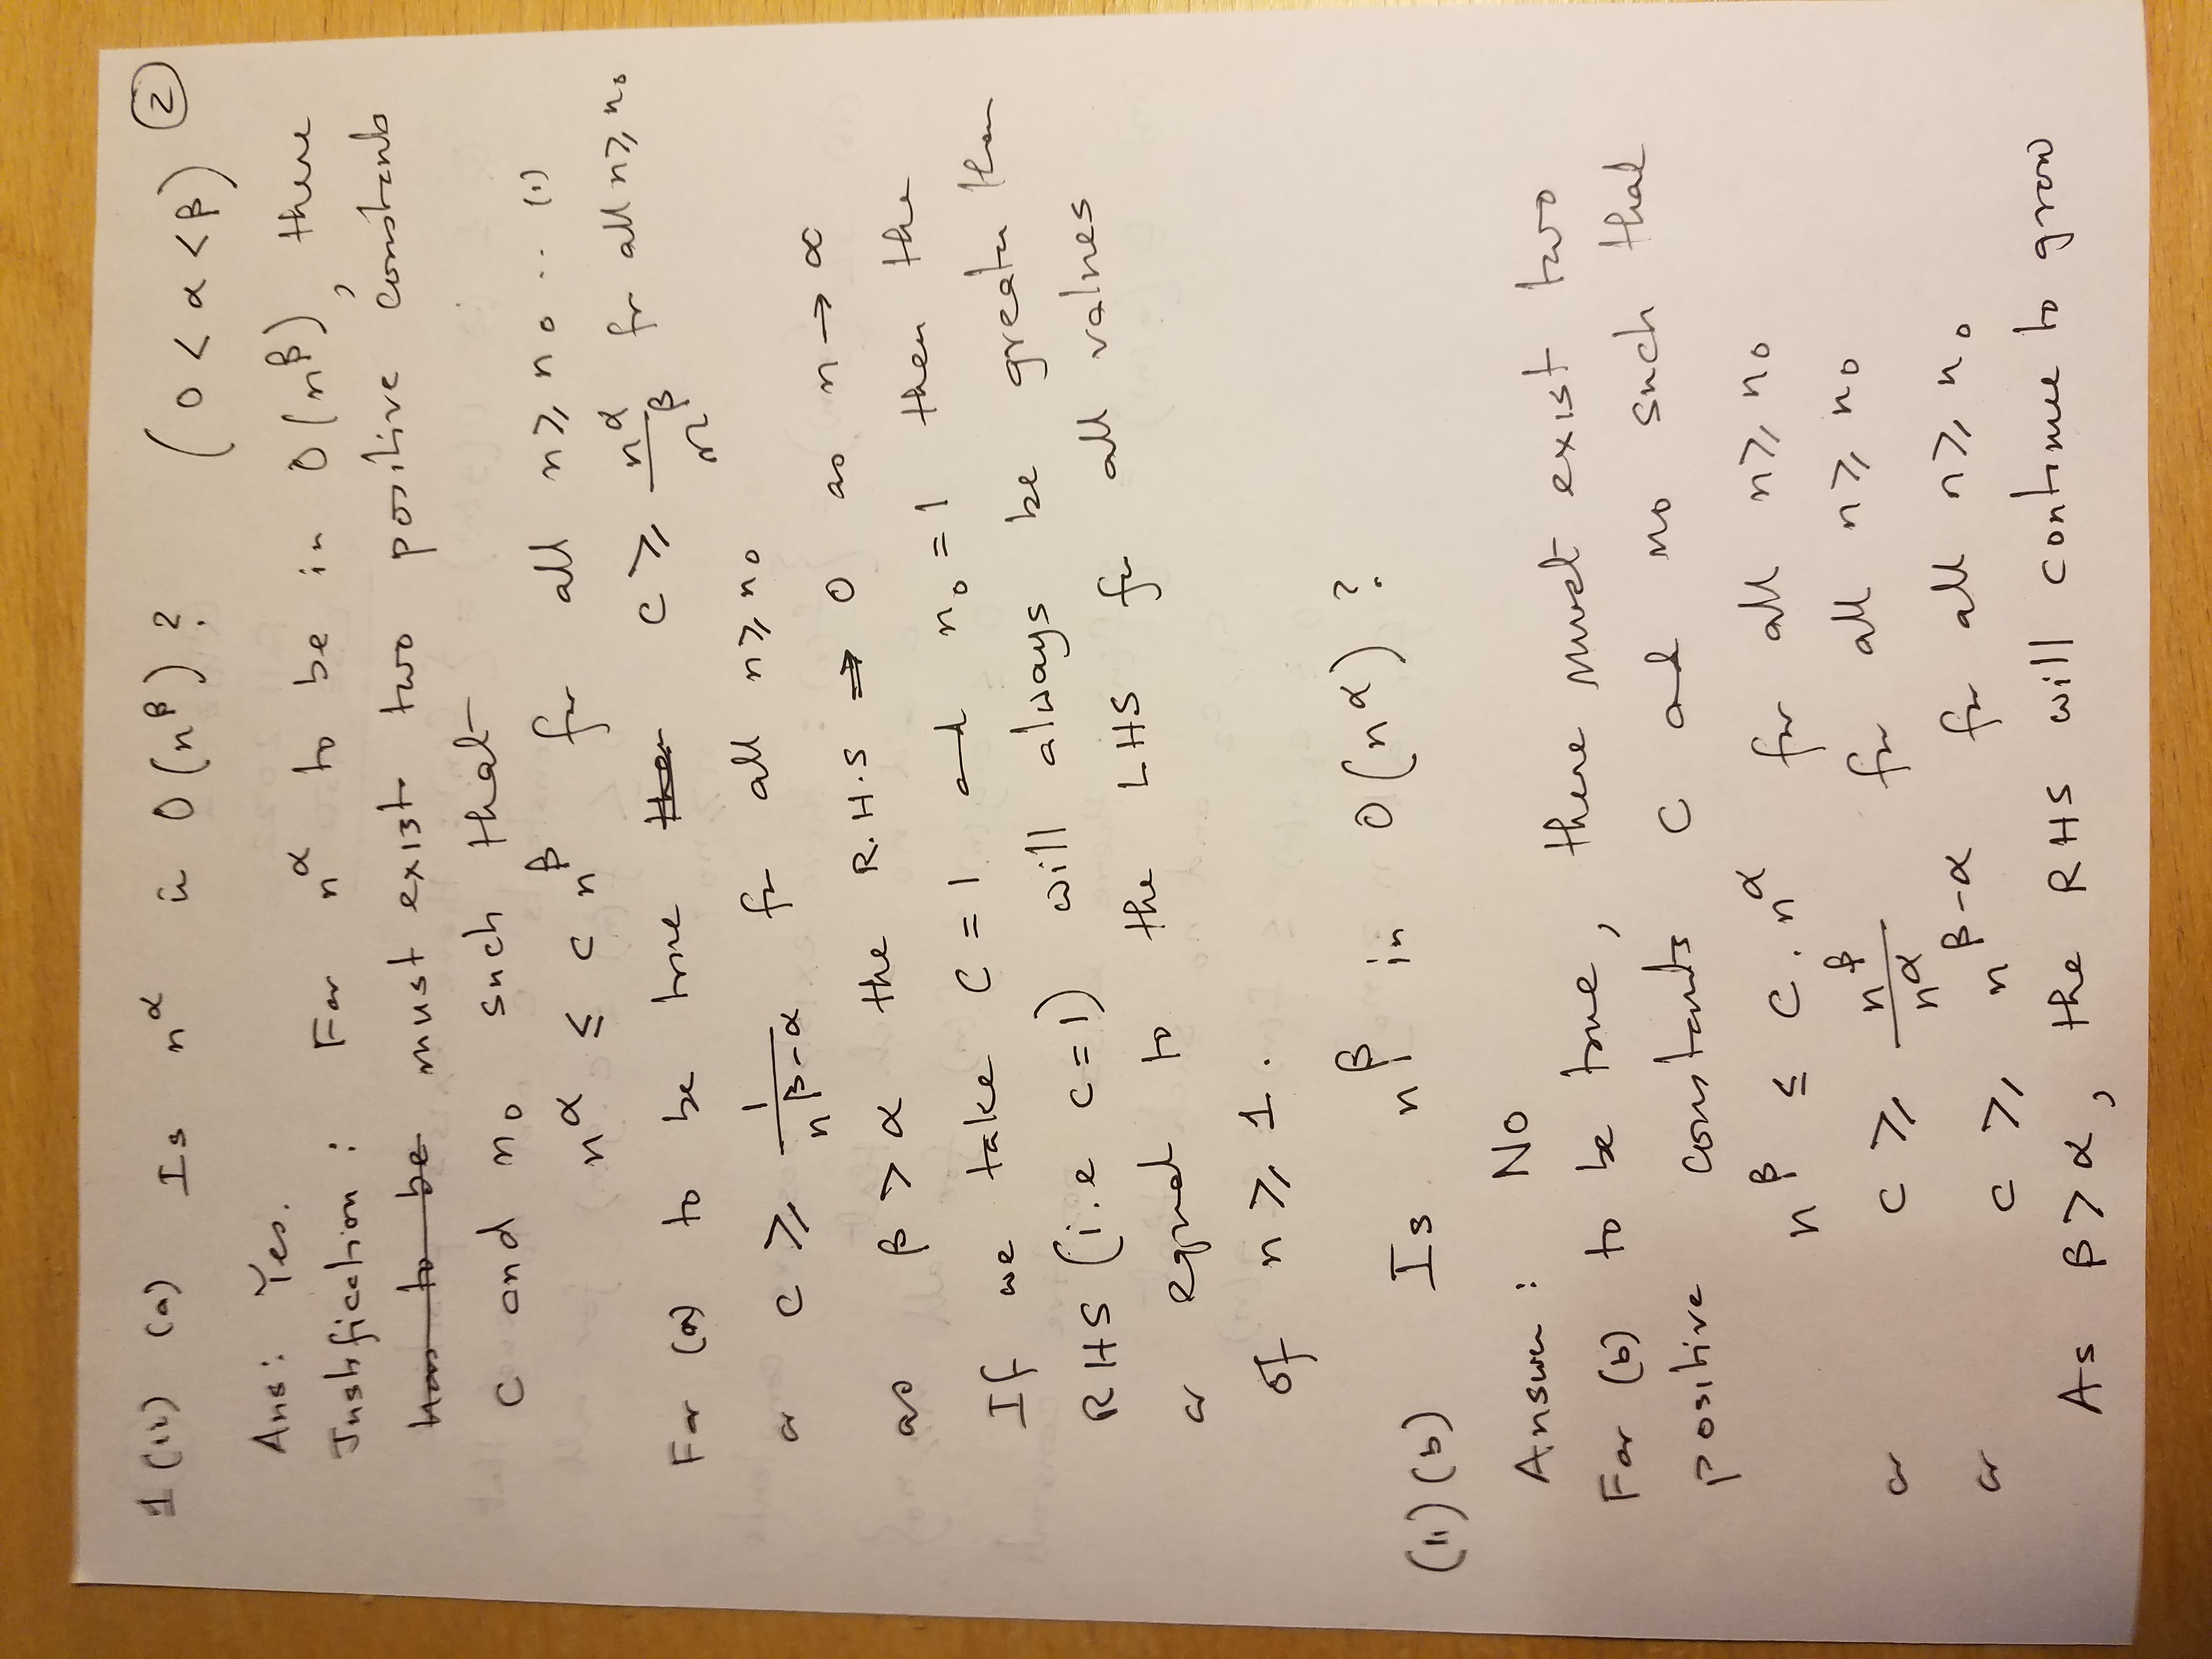 1 (ii) (a) Is n^α in O(n^β) ? (0 < α < β) ②
Ans: Yes.
Justification : For n^α to be in O(n^β), there
has to be must exist two positive constants
C and n₀ such that
n^α ≤ c n^β for all n ≥ n₀ .. (i)
For (a) to be true then c ≥ n^α / n^β for all n ≥ n₀
or c ≥ 1 / n^(β-α) for all n ≥ n₀
as β > α the R.H.S → 0 as n → ∞
If we take C = 1 and n₀ = 1 then the
RHS (i.e c=1) will always be greater than
or equal to the LHS for all values
of n ≥ 1.
(ii) (b) Is n^β in O(n^α) ?
Answer : No
For (b) to be true, there must exist two
positive constants C and n₀ such that
n^β ≤ C . n^α for all n ≥ n₀
or c ≥ n^β / n^α for all n ≥ n₀
or c ≥ n^(β-α) for all n ≥ n₀
As β > α, the RHS will continue to grow